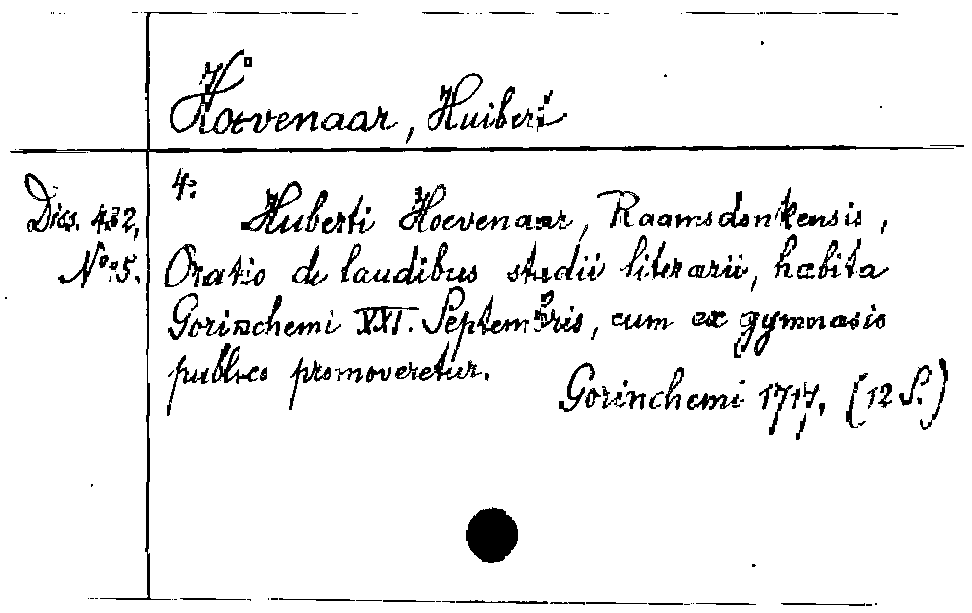 Hoevenaar, Huibert
Diss. 432,
No. 5.
4o
Huberti Hoevenaar, Raamsdonkensis,
Oratio de laudibus studii literarii, habita
Gorinchemi XXI. Septembris, cum ex gymnasio
publico promoveretur.
Gorinchemi 1717. (12 S.)